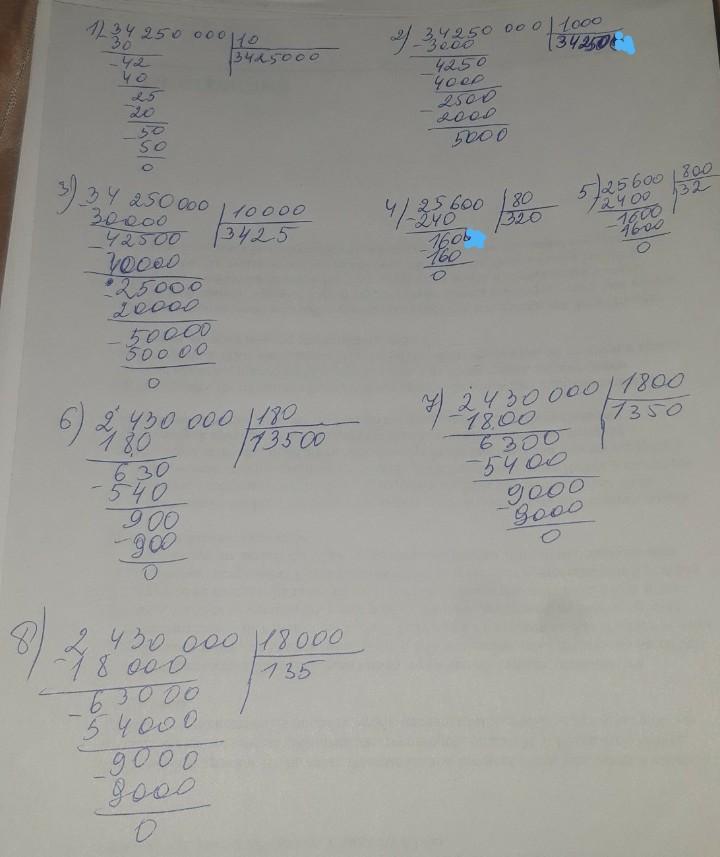 1) 34 250 000 | 10
30 | 3425000
-42
40
-25
-20
-50
50
0
2) 34250 000 | 1000
-3000 | 34250
-4250
4000
-2500
2000
5000
3) -34 250000 | 10000
30000 | 3425
-42500
40000
-25000
20000
-50000
50000
0
4) -25600 | 80
-240 | 320
-160
-160
0
5) 25600 | 800
2400 | 32
-1600
1600
0
6) 2 430 000 | 180
180 | 13500
630
-540
900
-900
0
7) 2430 000 | 1800
-1800 | 1350
6300
-5400
9000
-9000
0
8) 2 430 000 | 18000
-18 000 | 135
-63000
54000
-9000
9000
0